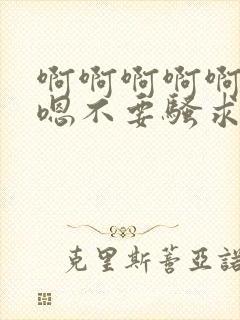 啊啊啊啊啊
嗯不要骚求
克里斯蒂亞諾